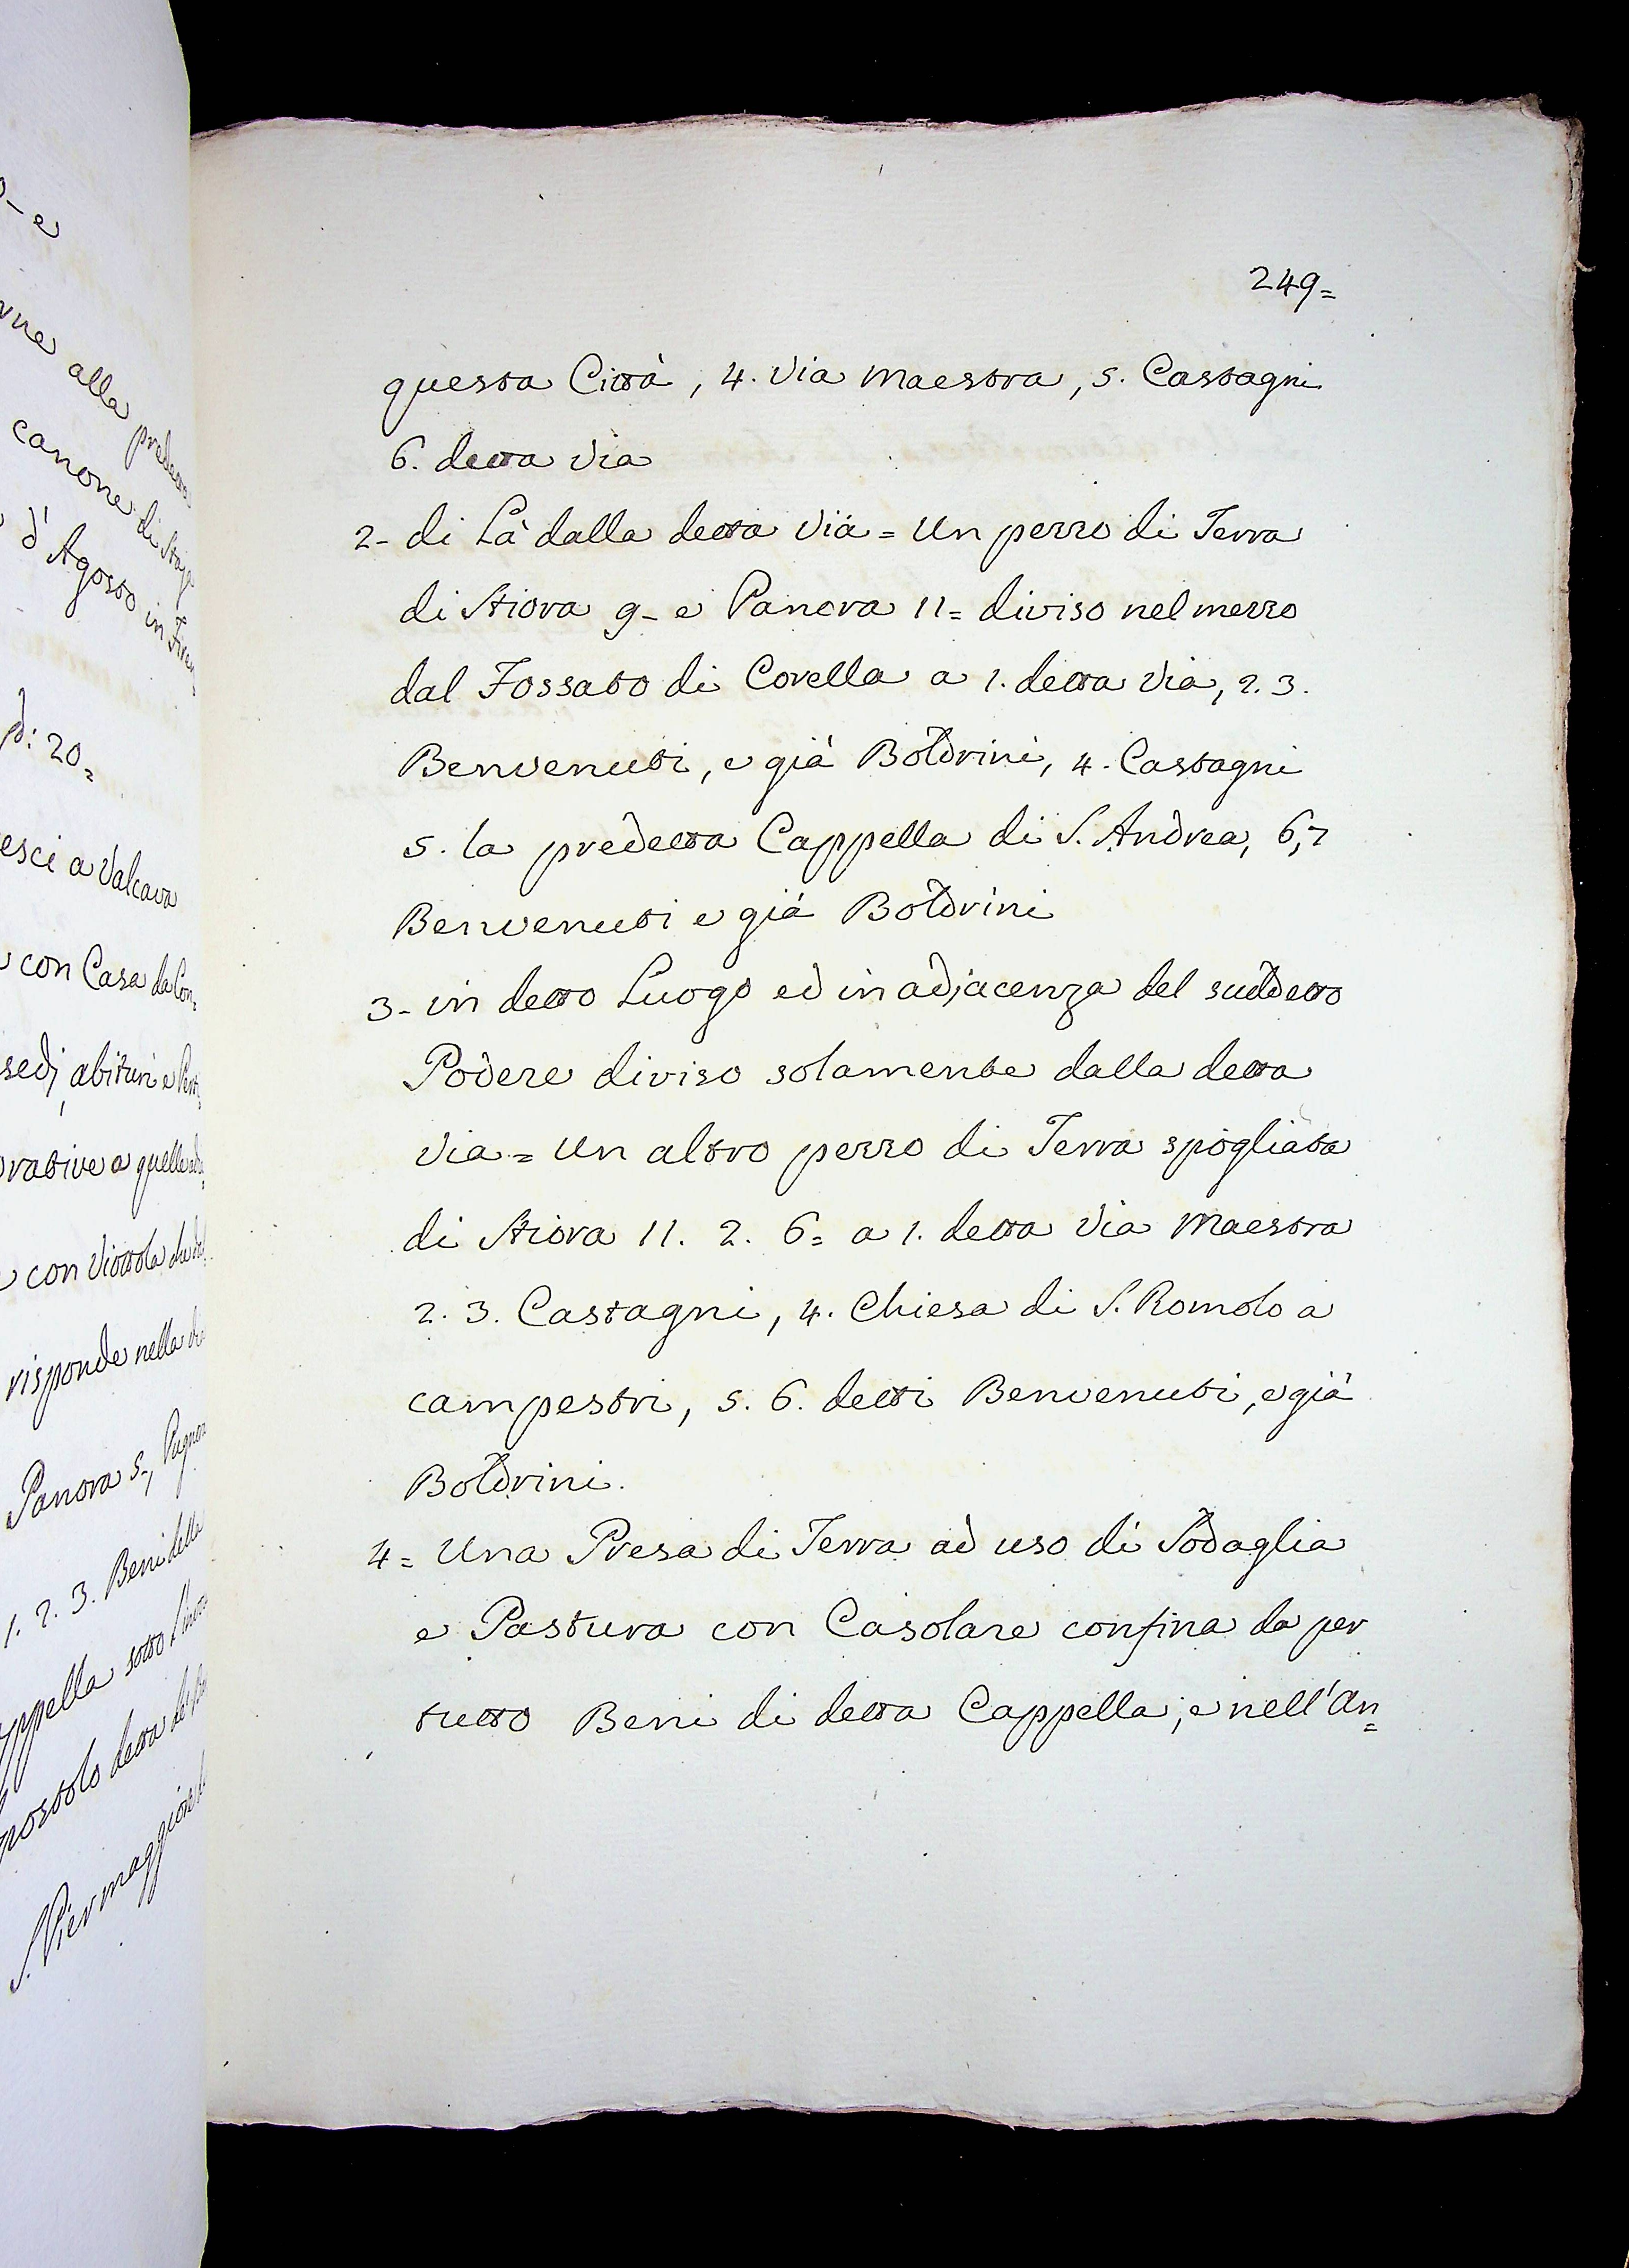 249=
questa Città, 4. Via Maestra, 5. Castagni
6. detta Via
2- di Là dalla detta Via = Un pezzo di Terra
di Stiora 9- e Panora 11= diviso nel mezzo
dal Fossato di Corella a 1. detta Via, 2. 3.
Benvenuti, e già Boldrini, 4. Castagni
5. la predetta Cappella di S. Andrea, 6, 7
Benvenuti e già Boldrini
3- in detto Luogo ed in adjacenza del suddetto
Podere diviso solamente dalla detta
Via = Un altro pezzo di Terra spogliata
di Stiora 11. 2. 6= a 1. detta Via Maestra
2. 3. Castagni, 4. Chiesa di S. Romolo a
campestri, 5. 6. detti Benvenuti, e già
Boldrini.
4= Una Presa di Terra ad uso di Sodaglia
e Pastura con Casolare confina da per
tutto Beni di detta Cappella, e nell'An=
alla
canone di
d'Agosto in
20=
a Valcava
con Casa da Con=
abituri e
a quelle
con Viottola
risponde nella
Panora 5-,
1. 2. 3. Beni della
sotto
detta
S. Pier maggiore